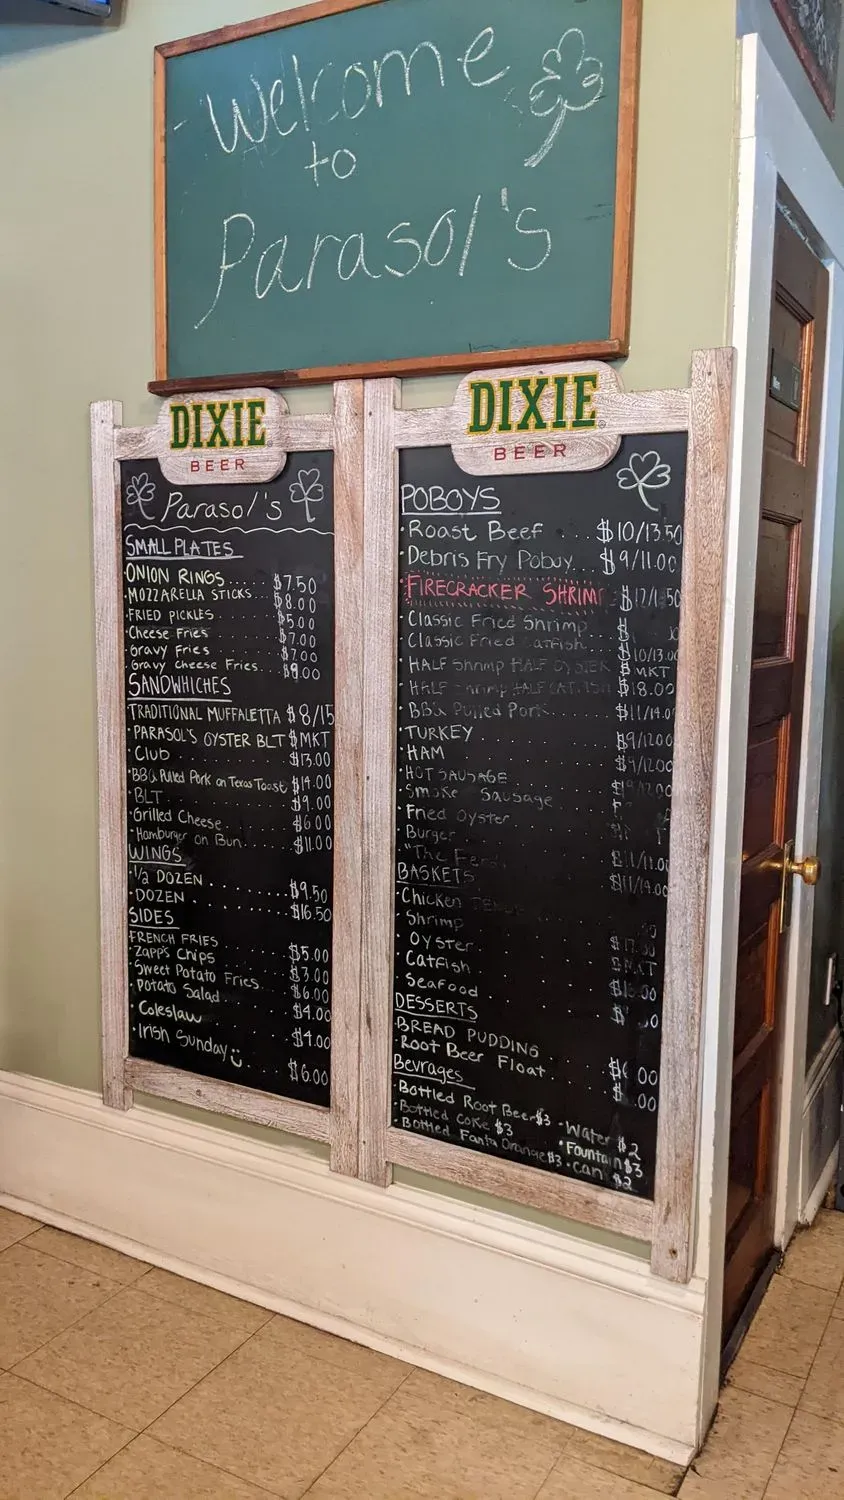 Welcome
to
Parasol's
DIXIE
BEER
Parasol's
SMALL PLATES
ONION RINGS........$7.50
MOZZARELLA STICKS...$8.00
FRIED PICKLES $5.00
Cheese Fries $7.00
Gravy Fries $7.00
Gravy Cheese Fries...$9.00
SANDWHICHES
TRADITIONAL MUFFALETTA $8/15
PARASOL'S OYSTER BLT $MKT
CLUB $13.00
BBQ Pulled Pork on Texas Toast $14.00
BLT $9.00
Grilled Cheese $6.00
Hamburger on Bun $11.00
WINGS
1/2 DOZEN $9.50
DOZEN $16.50
SIDES
FRENCH FRIES $5.00
Zapp's Chips $3.00
Sweet Potato Fries $6.00
Potato Salad $4.00
Coleslaw $4.00
Irish Sunday $6.00
DIXIE
BEER
POBOYS
Roast Beef ... $10/13.50
Debris Fry Pobuy ... $9/11.00
FIRECRACKER SHRIMP
Classic Fried Shrimp
Classic Fried Catfish $10/13.00
HALF Shrimp HALF OYSTER $MKT
HALF Shrimp HALF CATFISH $18.00
BBQ Pulled Pork $11/14.00
TURKEY $9/12.00
HAM $9/12.00
HOT SAUSAGE
Smoke Sausage
Fried Oyster
Burger
"The Ferdi $11/14.00
BASKETS
Chicken
Shrimp
OYSTER
Catfish
Seafood
DESSERTS
BREAD PUDDING
Root Beer Float
Bevrages
Bottled Root Beer $3 · Water $2
Bottled Coke $3 · Fountain $3
Bottled Fanta Orange $3 · Can $2